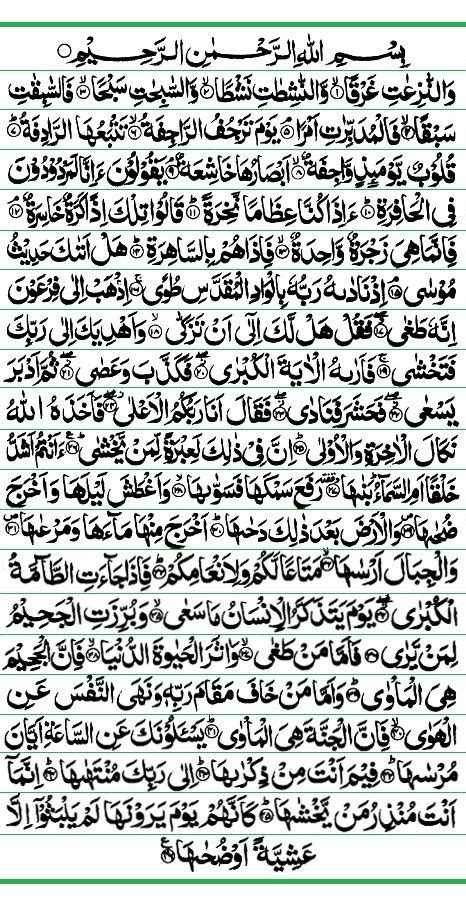 بِسْمِ اللهِ الرَّحْمٰنِ الرَّحِيْمِ ○
وَالنّٰزِعٰتِ غَرْقًاۙ﴿۱﴾ وَّالنّٰشِطٰتِ نَشْطًاۙ﴿۲﴾ وَّالسّٰبِحٰتِ سَبْحًاۙ﴿۳﴾ فَالسّٰبِقٰتِ
سَبْقًاۙ﴿۴﴾ فَالْمُدَبِّرٰتِ اَمْرًاۘ﴿۵﴾ يَوْمَ تَرْجُفُ الرَّاجِفَةُۙ﴿۶﴾ تَتْبَعُهَا الرَّادِفَةُؕ﴿۷﴾
قُلُوْبٌ يَّوْمَئِذٍ وَّاجِفَةٌۙ﴿۸﴾ اَبْصَارُهَا خَاشِعَةٌۘ﴿۹﴾ يَقُوْلُوْنَ ءَاِنَّا لَمَرْدُوْدُوْنَ
فِى الْحَافِرَةِؕ﴿۱۰﴾ ءَاِذَا كُنَّا عِظَامًا نَّخِرَةًؕ﴿۱۱﴾ قَالُوْا تِلْكَ اِذًا كَرَّةٌ خَاسِرَةٌۘ﴿۱۲﴾
فَاِنَّمَا هِىَ زَجْرَةٌ وَّاحِدَةٌۙ﴿۱۳﴾ فَاِذَا هُمْ بِالسَّاهِرَةِؕ﴿۱۴﴾ هَلْ اَتٰىكَ حَدِيْثُ
مُوْسٰىۘ﴿۱۵﴾ اِذْ نَادٰىهُ رَبُّهٗ بِالْوَادِ الْمُقَدَّسِ طُوًىۚ﴿۱۶﴾ اِذْهَبْ اِلٰى فِرْعَوْنَ
اِنَّهٗ طَغٰىۖ﴿۱۷﴾ فَقُلْ هَلْ لَّكَ اِلٰٓى اَنْ تَزَكّٰىۙ﴿۱۸﴾ وَاَهْدِيَكَ اِلٰى رَبِّكَ
فَتَخْشٰىۚ﴿۱۹﴾ فَاَرٰىهُ الْاٰيَةَ الْكُبْرٰىۖ﴿۲۰﴾ فَكَذَّبَ وَعَصٰىۖ﴿۲۱﴾ ثُمَّ اَدْبَرَ
يَسْعٰىۖ﴿۲۲﴾ فَحَشَرَ فَنَادٰىۖ﴿۲۳﴾ فَقَالَ اَنَا رَبُّكُمُ الْاَعْلٰىۖ﴿۲۴﴾ فَاَخَذَهُ اللهُ
نَكَالَ الْاٰخِرَةِ وَالْاُوْلٰىؕ﴿۲۵﴾ اِنَّ فِىْ ذٰلِكَ لَعِبْرَةً لِّمَنْ يَّخْشٰىؕ﴿۲۶﴾ ءَاَنْتُمْ اَشَدُّ
خَلْقًا اَمِ السَّمَآءُؕ بَنٰىهَاۥ﴿۲۷﴾ رَفَعَ سَمْكَهَا فَسَوّٰىهَاۙ﴿۲۸﴾ وَاَغْطَشَ لَيْلَهَا وَاَخْرَجَ
ضُحٰىهَا۪﴿۲۹﴾ وَالْاَرْضَ بَعْدَ ذٰلِكَ دَحٰىهَاؕ﴿۳۰﴾ اَخْرَجَ مِنْهَا مَآءَهَا وَمَرْعٰىهَا۪﴿۳۱﴾
وَالْجِبَالَ اَرْسٰىهَاۙ﴿۳۲﴾ مَتَاعًا لَّكُمْ وَلِاَنْعَامِكُمْؕ﴿۳۳﴾ فَاِذَا جَآءَتِ الطَّآمَّةُ
الْكُبْرٰىۖ﴿۳۴﴾ يَوْمَ يَتَذَكَّرُ الْاِنْسَانُ مَا سَعٰىۙ﴿۳۵﴾ وَبُرِّزَتِ الْجَحِيْمُ
لِمَنْ يَّرٰى﴿۳۶﴾ فَاَمَّا مَنْ طَغٰىۙ﴿۳۷﴾ وَاٰثَرَ الْحَيٰوةَ الدُّنْيَاۙ﴿۳۸﴾ فَاِنَّ الْجَحِيْمَ
هِىَ الْمَاْوٰىؕ﴿۳۹﴾ وَاَمَّا مَنْ خَافَ مَقَامَ رَبِّهٖ وَنَهَى النَّفْسَ عَنِ
الْهَوٰىۙ﴿۴۰﴾ فَاِنَّ الْجَنَّةَ هِىَ الْمَاْوٰىؕ﴿۴۱﴾ يَسْـَٔلُوْنَكَ عَنِ السَّاعَةِ اَيَّانَ
مُرْسٰىهَاؕ﴿۴۲﴾ فِيْمَ اَنْتَ مِنْ ذِكْرٰىهَاؕ﴿۴۳﴾ اِلٰى رَبِّكَ مُنْتَهٰىهَاؕ﴿۴۴﴾ اِنَّمَآ
اَنْتَ مُنْذِرُ مَنْ يَّخْشٰىهَاؕ﴿۴۵﴾ كَاَنَّهُمْ يَوْمَ يَرَوْنَهَا لَمْ يَلْبَثُوْٓا اِلَّا
عَشِيَّةً اَوْ ضُحٰىهَا﴿۴۶﴾